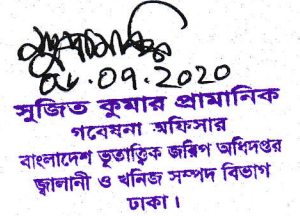 ০৮.০9.2020
সুজিত কুমার প্রামানিক
গবেষনা অফিসার
বাংলাদেশ ভূতাত্ত্বিক জরিপ অধিদপ্তর
জ্বালানী ও খনিজ সম্পদ বিভাগ
ঢাকা।